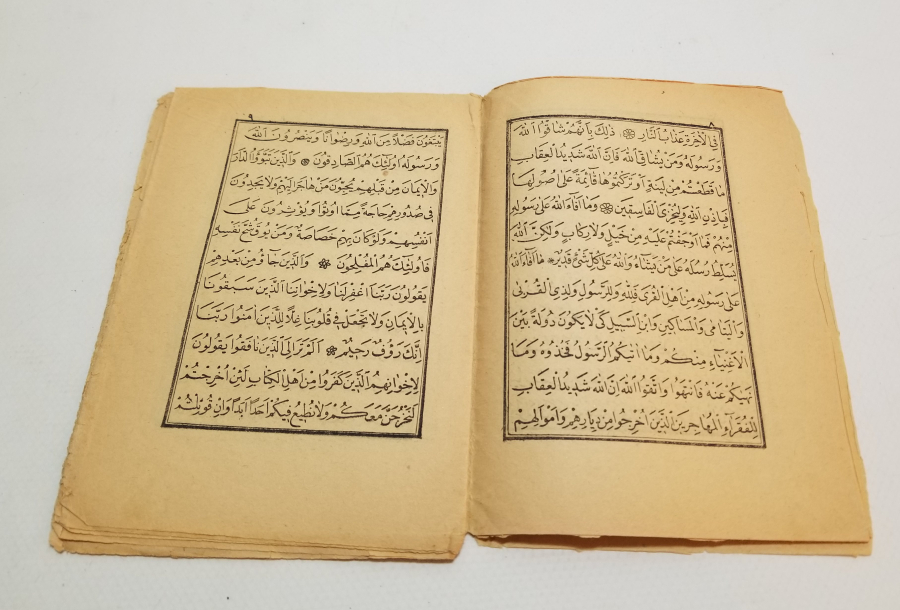 ٨
فِي الْاٰخِرَةِ عَذَابُ النَّارِ ذٰلِكَ بِاَنَّهُمْ شَاقُّوا اللّٰهَ
وَرَسُولَهُ وَمَنْ يُشَاقِّ اللّٰهَ فَاِنَّ اللّٰهَ شَدِيدُ الْعِقَابِ
مَا قَطَعْتُمْ مِنْ لِينَةٍ اَوْ تَرَكْتُمُوهَا قَائِمَةً عَلٰى اُصُولِهَا
فَبِاِذْنِ اللّٰهِ وَلِيُخْزِيَ الْفَاسِقِينَ وَمَا اَفَاءَ اللّٰهُ عَلٰى رَسُولِهِ
مِنْهُمْ فَمَا اَوْجَفْتُمْ عَلَيْهِ مِنْ خَيْلٍ وَلَا رِكَابٍ وَلٰكِنَّ اللّٰهَ
يُسَلِّطُ رُسُلَهُ عَلٰى مَنْ يَشَاءُ وَاللّٰهُ عَلٰى كُلِّ شَيْءٍ قَدِيرٌ مَا اَفَاءَ اللّٰهُ
عَلٰى رَسُولِهِ مِنْ اَهْلِ الْقُرٰى فَلِلّٰهِ وَلِلرَّسُولِ وَلِذِي الْقُرْبٰى
وَالْيَتَامٰى وَالْمَسَاكِينِ وَابْنِ السَّبِيلِ كَيْ لَا يَكُونَ دُولَةً بَيْنَ
الْاَغْنِيَاءِ مِنْكُمْ وَمَا اٰتٰيكُمُ الرَّسُولُ فَخُذُوهُ وَمَا
نَهٰيكُمْ عَنْهُ فَانْتَهُوا وَاتَّقُوا اللّٰهَ اِنَّ اللّٰهَ شَدِيدُ الْعِقَابِ
لِلْفُقَرَاءِ الْمُهَاجِرِينَ الَّذِينَ اُخْرِجُوا مِنْ دِيَارِهِمْ وَاَمْوَالِهِمْ
٩
يَبْتَغُونَ فَضْلًا مِنَ اللّٰهِ وَرِضْوَانًا وَيَنْصُرُونَ اللّٰهَ
وَرَسُولَهُ اُولٰئِكَ هُمُ الصَّادِقُونَ وَالَّذِينَ تَبَوَّؤُا الدَّارَ
وَالْاِيمَانَ مِنْ قَبْلِهِمْ يُحِبُّونَ مَنْ هَاجَرَ اِلَيْهِمْ وَلَا يَجِدُونَ
فِي صُدُورِهِمْ حَاجَةً مِمَّا اُوتُوا وَيُؤْثِرُونَ عَلٰى
اَنْفُسِهِمْ وَلَوْ كَانَ بِهِمْ خَصَاصَةٌ وَمَنْ يُوقَ شُحَّ نَفْسِهِ
فَاُولٰئِكَ هُمُ الْمُفْلِحُونَ وَالَّذِينَ جَاؤُ مِنْ بَعْدِهِمْ
يَقُولُونَ رَبَّنَا اغْفِرْ لَنَا وَلِاِخْوَانِنَا الَّذِينَ سَبَقُونَا
بِالْاِيمَانِ وَلَا تَجْعَلْ فِي قُلُوبِنَا غِلًّا لِلَّذِينَ اٰمَنُوا رَبَّنَا
اِنَّكَ رَؤُفٌ رَحِيمٌ اَلَمْ تَرَ اِلَى الَّذِينَ نَافَقُوا يَقُولُونَ
لِاِخْوَانِهِمُ الَّذِينَ كَفَرُوا مِنْ اَهْلِ الْكِتَابِ لَئِنْ اُخْرِجْتُمْ
لَنَخْرُجَنَّ مَعَكُمْ وَلَا نُطِيعُ فِيكُمْ اَحَدًا اَبَدًا وَاِنْ قُوتِلْتُمْ